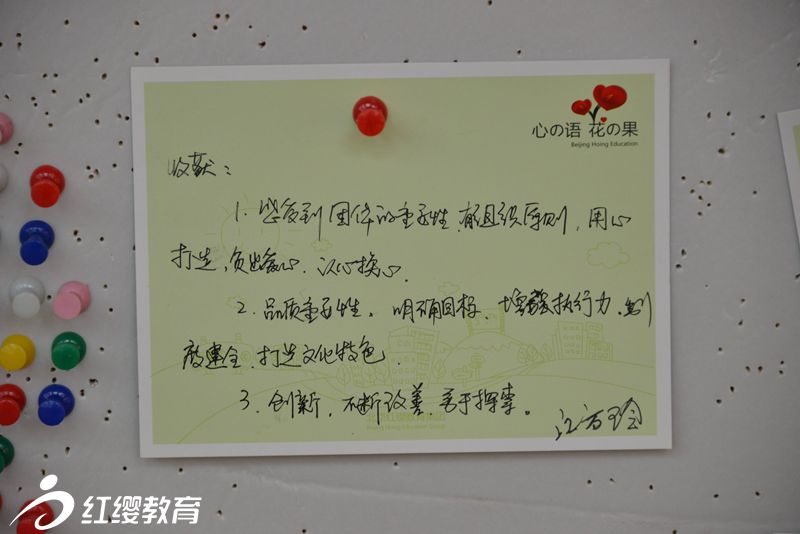 心の语 花の果
Beijing Hoing Education
收获：
1. 感受到团体的重要性，有组织原则，用心
打造，负出爱心，以心换心。
2. 品质重要性。明确目标，增强执行力，制
度建全，打造文化特色
3. 创新，不断改善，善于探索。
红缨教育